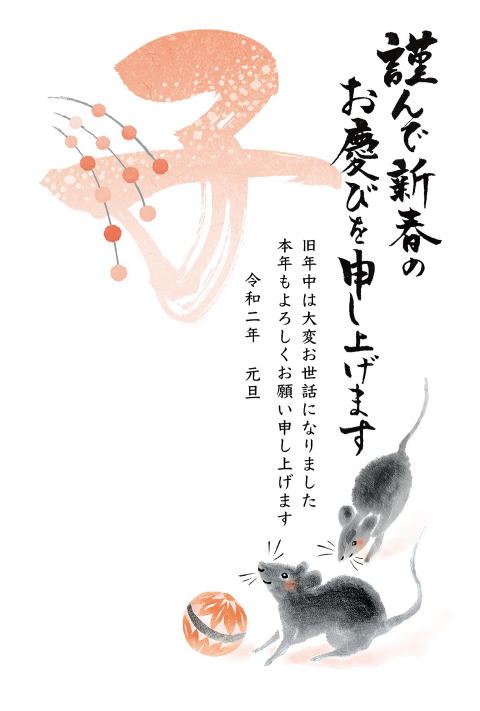 謹んで新春の
お慶びを申し上げます
旧年中は大変お世話になりました
本年もよろしくお願い申し上げます
令和二年　元旦
子